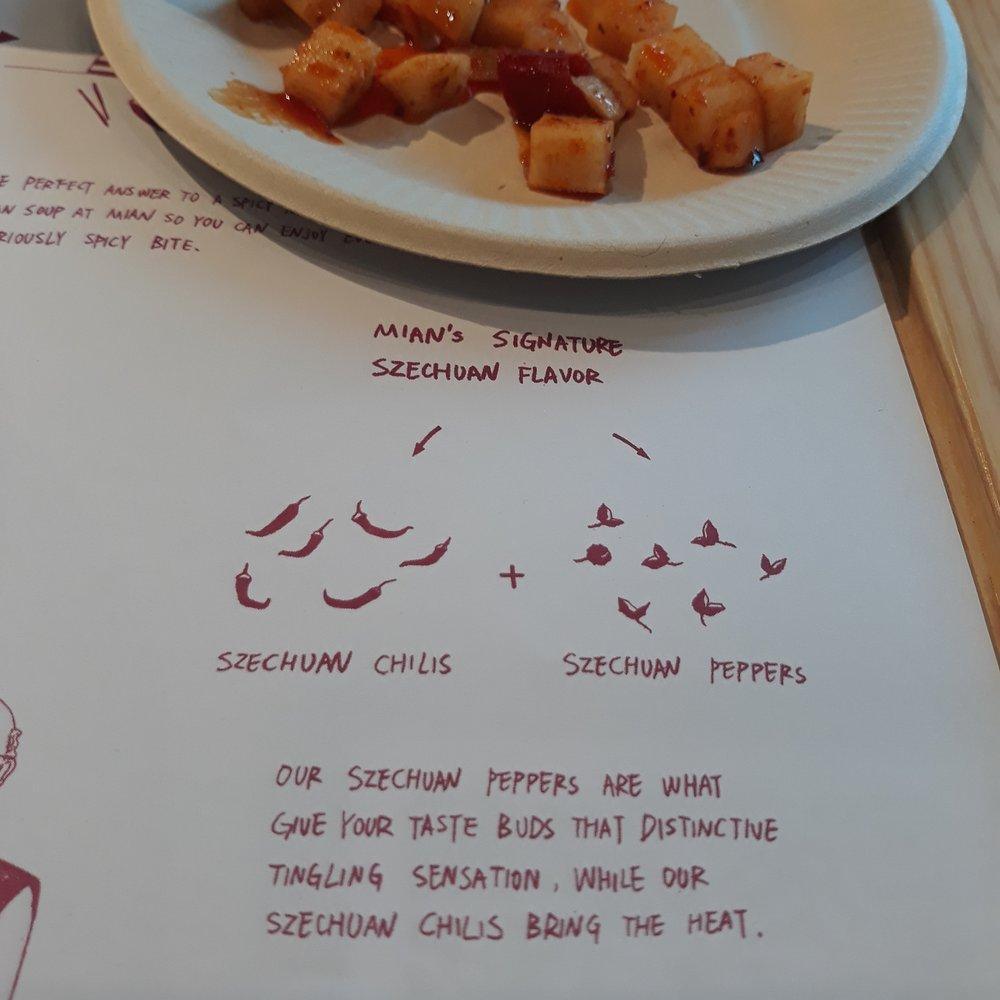 PERFECT ANSWER TO A SPICY
SOUP AT MIAN SO YOU CAN ENJOY
SPICY BITE.
MIAN'S SIGNATURE
SZECHUAN FLAVOR
SZECHUAN CHILIS
+
SZECHUAN PEPPERS
OUR SZECHUAN PEPPERS ARE WHAT
GIVE YOUR TASTE BUDS THAT DISTINCTIVE
TINGLING SENSATION, WHILE OUR
SZECHUAN CHILIS BRING THE HEAT.